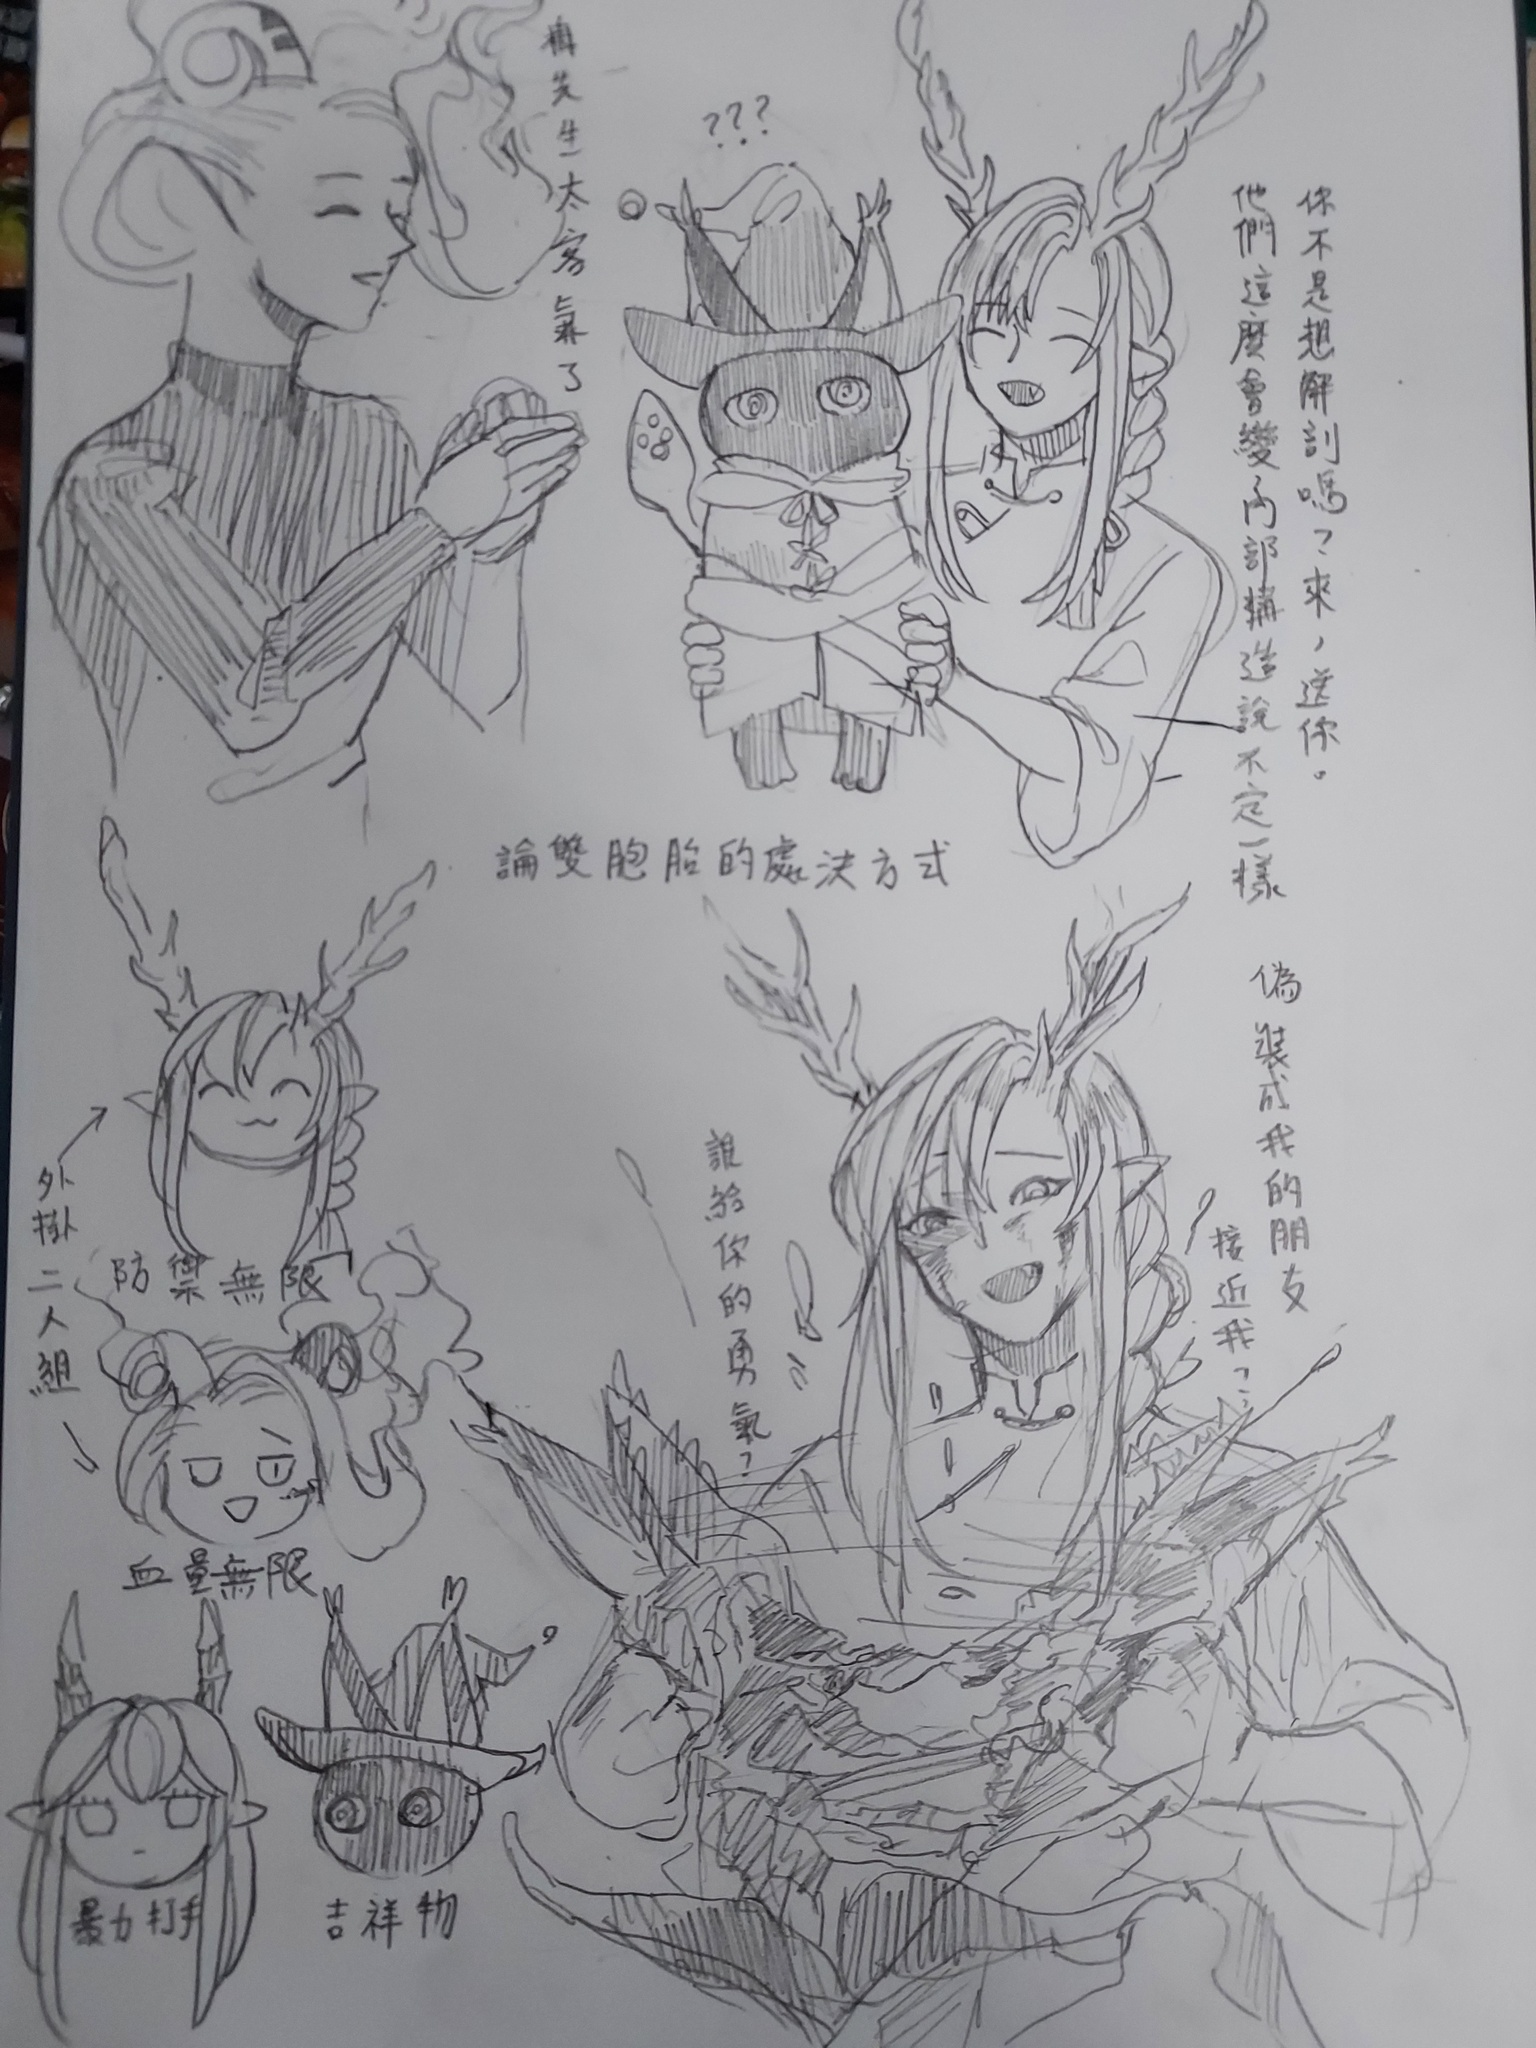 你不是想解剖嗎？來，送你。
他們這麼會變內部構造說不定一樣
???
梅先生太客氣了
論雙胞胎的處決方式
偽裝成我的朋友
接近我？
誰給你的勇氣？
外掛二人組
防禦無限
血量無限
暴力打手
吉祥物